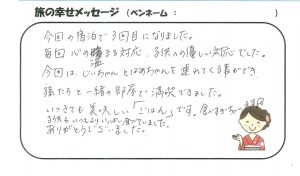 旅の幸せメッセージ （ペンネーム： ）
今回の宿泊で3回目になりました。
毎回心の温まる対応、子供への優しい対応でした。
今回は、じいちゃんとばあちゃんを連れてくる事ができ
孫たちと一緒の部屋で満喫できました。
いつきても美味しい「ごはん」です。食べすぎちゃいます
子供もいつもよりいっぱい食べていました。
ありがとうございました。